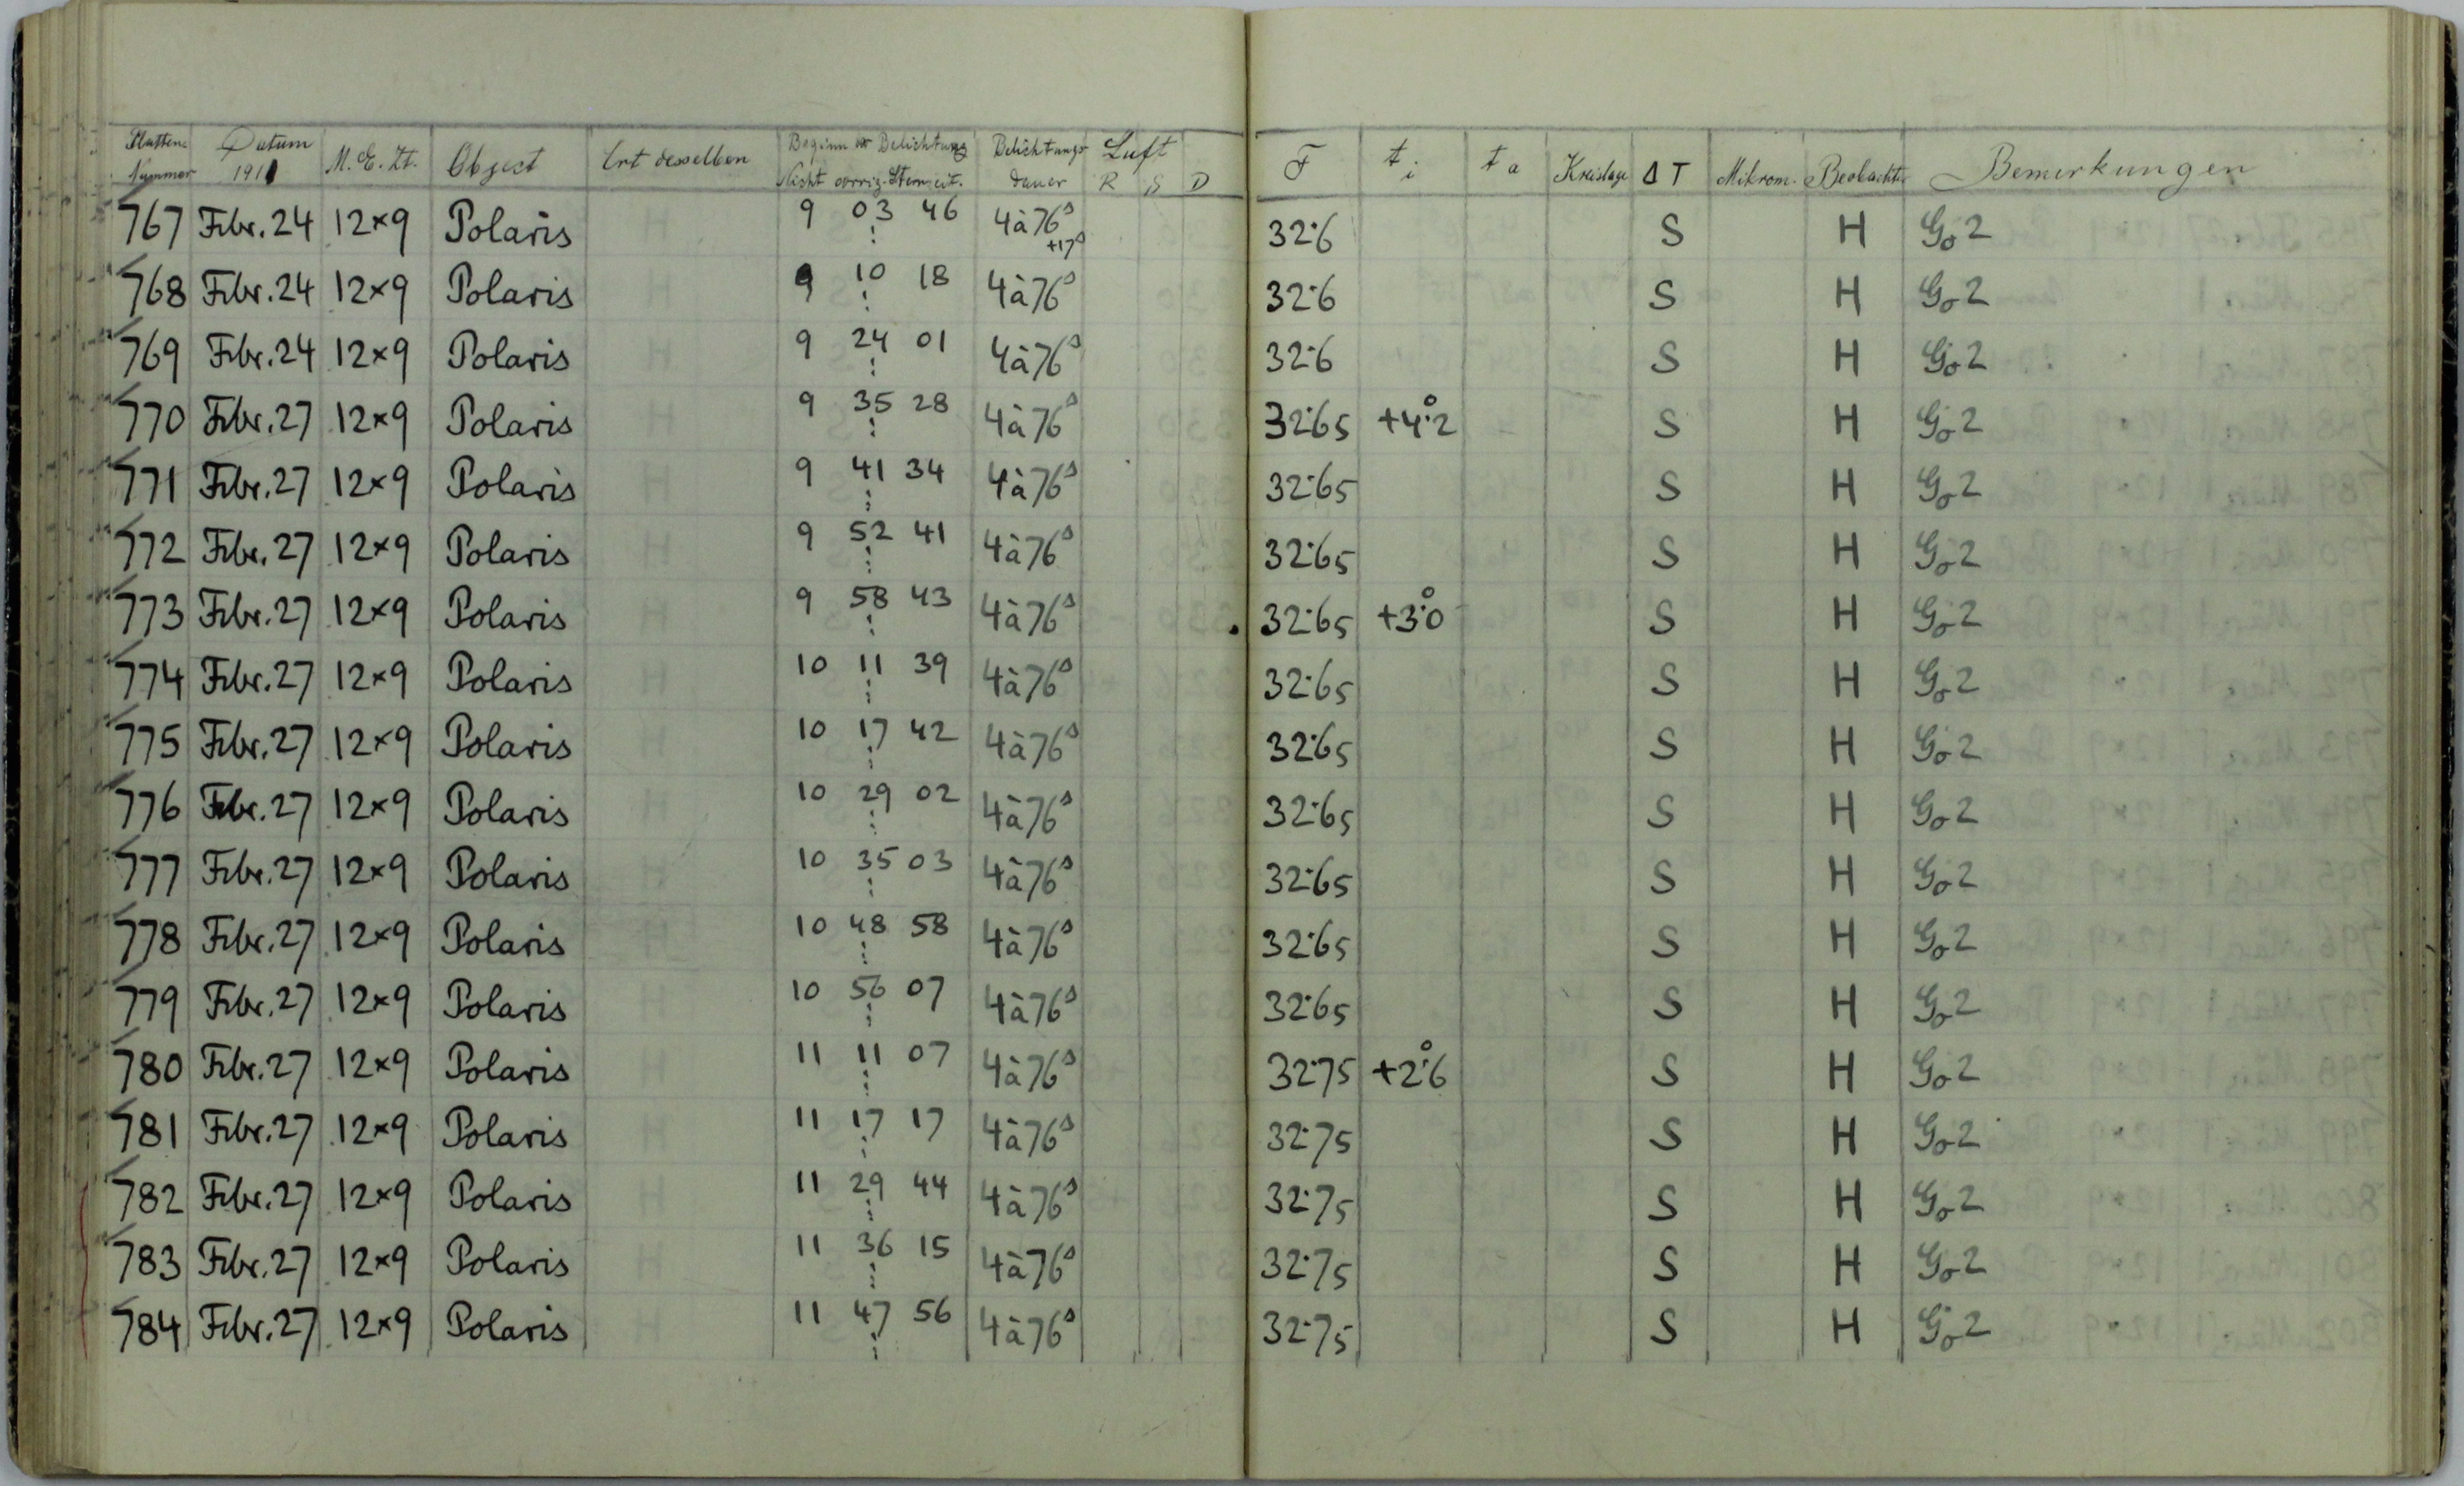 Platten Nummer Datum 1911 M.E.Zt. Object Ort desselben Beginn der Belichtung Nicht corrig. Sternzeit. Belichtungs dauer Luft R S D F ti ta Kreislage ΔT Mikrom. Beobacht. Bemerkungen
767 Febr.24 12×9 Polaris 9 03 46 4à76s +17s 32·6 S H Gö2
768 Febr.24 12×9 Polaris 9 10 18 4à76s 32·6 S H Gö2
769 Febr.24 12×9 Polaris 9 24 01 4à76s 32·6 S H Gö2
770 Febr.27 12×9 Polaris 9 35 28 4à76s 32·65 +4°.2 S H Gö2
771 Febr.27 12×9 Polaris 9 41 34 4à76s 32·65 S H Gö2
772 Febr.27 12×9 Polaris 9 52 41 4à76s 32·65 S H Gö2
773 Febr.27 12×9 Polaris 9 58 43 4à76s 32·65 +3°.0 S H Gö2
774 Febr.27 12×9 Polaris 10 11 39 4à76s 32·65 S H Gö2
775 Febr.27 12×9 Polaris 10 17 42 4à76s 32·65 S H Gö2
776 Febr.27 12×9 Polaris 10 29 02 4à76s 32·65 S H Gö2
777 Febr.27 12×9 Polaris 10 35 03 4à76s 32·65 S H Gö2
778 Febr.27 12×9 Polaris 10 48 58 4à76s 32·65 S H Gö2
779 Febr.27 12×9 Polaris 10 56 07 4à76s 32·65 S H Gö2
780 Febr.27 12×9 Polaris 11 11 07 4à76s 32·75 +2°.6 S H Gö2
781 Febr.27 12×9 Polaris 11 17 17 4à76s 32·75 S H Gö2
782 Febr.27 12×9 Polaris 11 29 44 4à76s 32·75 S H Gö2
783 Febr.27 12×9 Polaris 11 36 15 4à76s 32·75 S H Gö2
784 Febr.27 12×9 Polaris 11 47 56 4à76s 32·75 S H Gö2